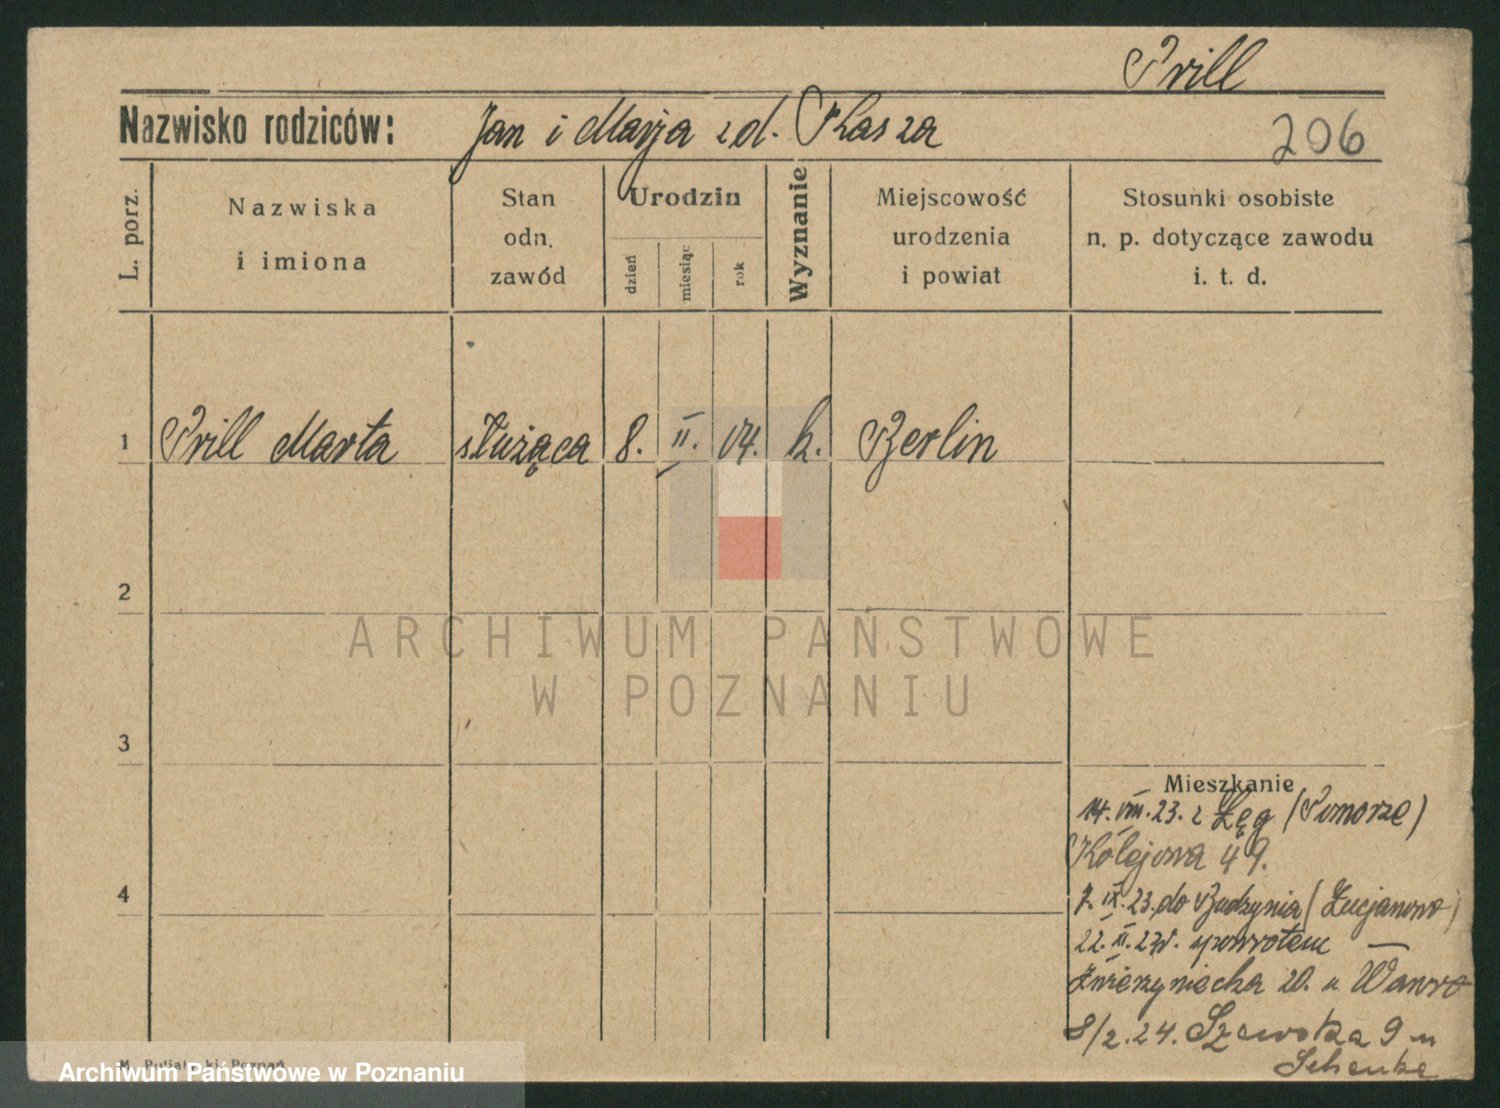 Prill
Nazwisko rodziców: Jan i Marja zd. Kasza
206
L. porz.
Nazwiska
i imiona
Stan
odn.
zawód
Urodzin
dzień
miesiąc
rok
Wyznanie
Miejscowość
urodzenia
i powiat
Stosunki osobiste
n. p. dotyczące zawodu
i. t. d.
1 Prill Marta służąca 8. II. 04. k. Berlin
2
ARCHIWUM PAŃSTWOWE
W POZNANIU
3
Mieszkanie
14. VIII. 23. z Łęg (Pomorze)
Kolejowa 49.
4
7. IX. 23. do Budzynia (Lucjanowo)
22. II. spowrotem
Zwierzyniecka 20. u Wawro
8/2.24. Szewska 9 u
Schenke
Poznań
Archiwum Państwowe w Poznaniu